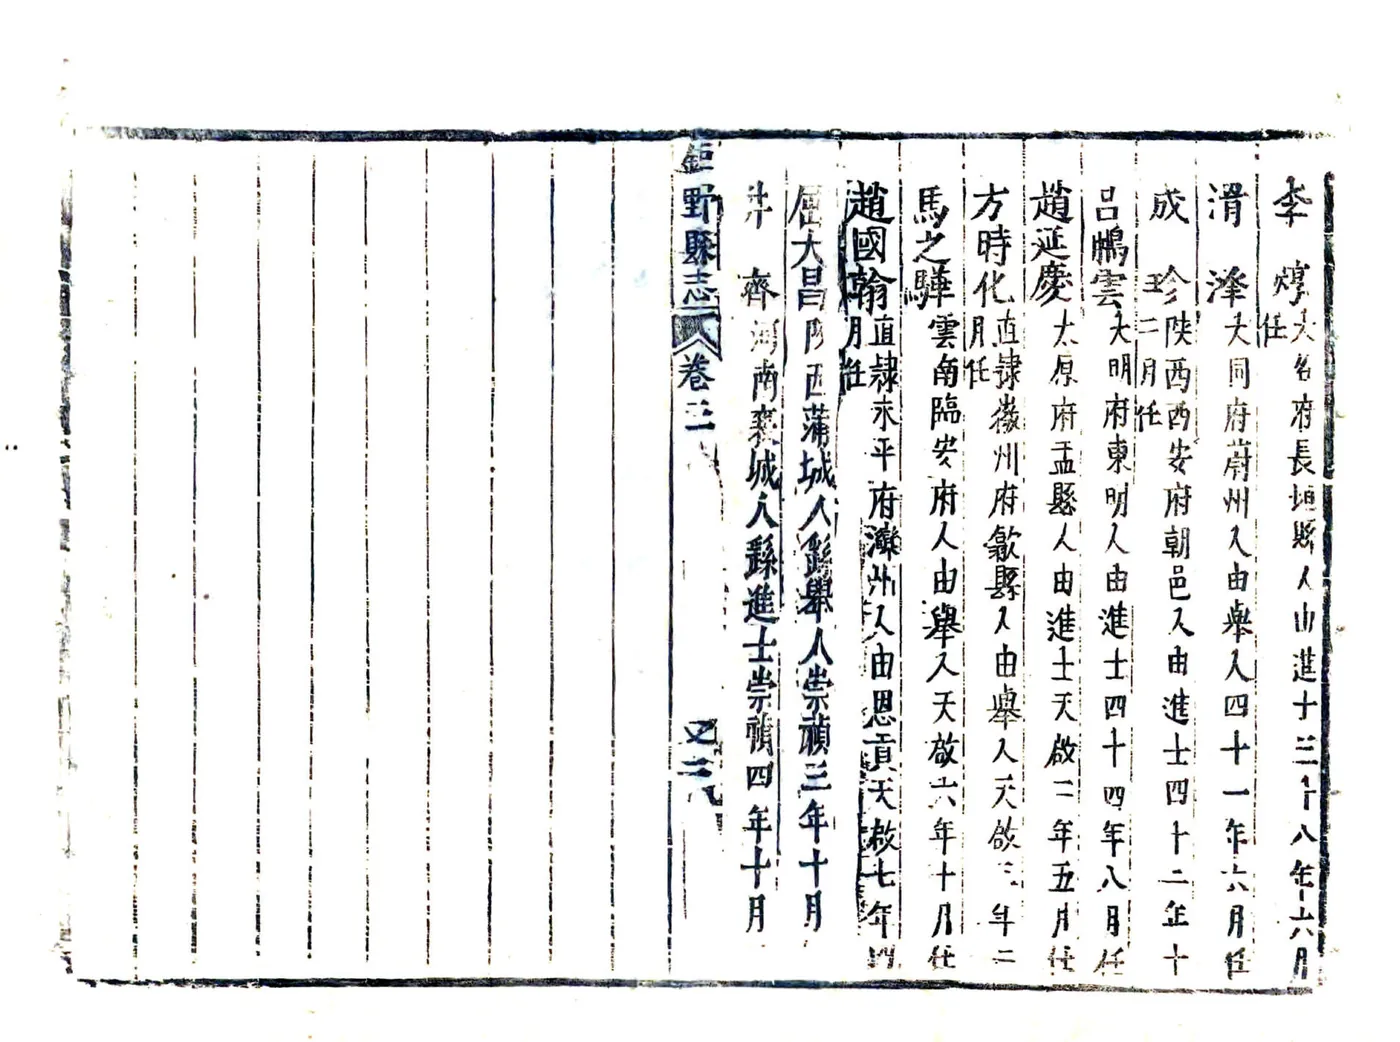 李焞大名府長垣縣人由進士三十八年六月任
滑澤大同府蔚州人由舉人四十一年六月任
成珍陝西西安府朝邑人由進士四十二年十二月任
呂鵬雲大明府東明人由進士四十四年八月任
趙延慶太原府盂縣人由進士天啟二年五月任
方時化直隸徽州府歙縣人由舉人天啟三年二月任
馬之驊雲南臨安府人由舉人天啟六年十月任
趙國翰直隸永平府灤州人由恩貢天啟七年四月任
屈大昌陝西蒲城人繇舉人崇禎三年十月
井齊河南襄城人繇進士崇禎四年十月
鉅野縣志
卷三
又二八